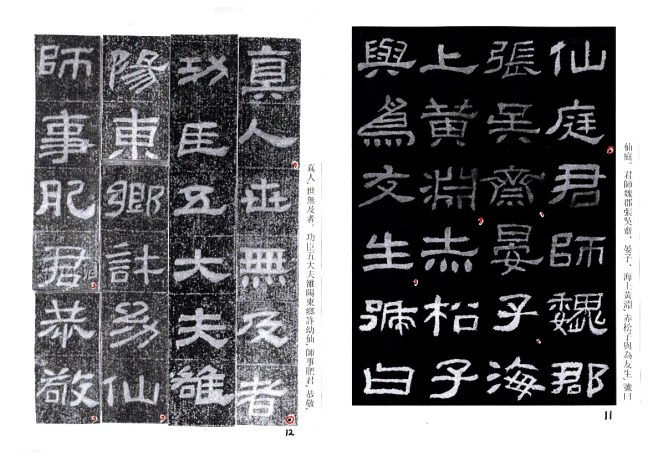 仙庭。君師魏郡張吳齋、晏子、海上黃淵、赤松子與為友生、號曰
仙庭君師魏郡
張吳齋晏子海
上黃淵赤松子
與為友生號曰
11
真人、世無及者。功臣五大夫雒陽東鄉許幼仙、師事肥君、恭敬、
真人世無及者
功臣五大夫雒
陽東鄉許幼仙
師事肥君恭敬
12